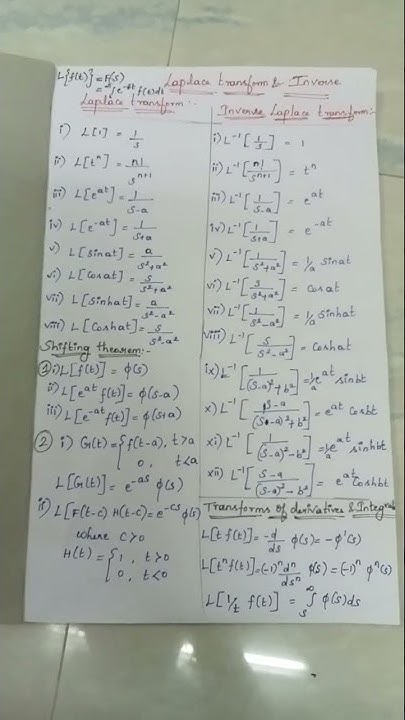 L{f(t)} = F(s)
= ∫e^-st f(t)dt
Laplace transform & Inverse
Laplace transform:-
i) L[1] = 1/s
ii) L[t^n] = n!/s^(n+1)
iii) L[e^at] = 1/(s-a)
iv) L[e^-at] = 1/(s+a)
v) L[sinat] = a/(s²+a²)
vi) L[cosat] = s/(s²+a²)
vii) L[sinhat] = a/(s²-a²)
viii) L[coshat] = s/(s²-a²)
Shifting theorem:-
① i) L[f(t)] = φ(s)
ii) L[e^at f(t)] = φ(s-a)
iii) L[e^-at f(t)] = φ(s+a)
② i) G(t) = {f(t-a), t>a
0, t<a
L[G(t)] = e^-as φ(s)
ii) L[F(t-c) H(t-c) = e^-cs φ(s)
where c>0
H(t) = {1, t>0
0, t<0
Inverse Laplace transform:-
i) L^-1[1/s] = 1
ii) L^-1[n!/s^(n+1)] = t^n
iii) L^-1[1/(s-a)] = e^at
iv) L^-1[1/(s+a)] = e^-at
v) L^-1[1/(s²+a²)] = 1/a sinat
vi) L^-1[s/(s²+a²)] = cosat
vii) L^-1[1/(s²-a²)] = 1/a sinhat
viii) L^-1[s/(s²-a²)] = coshat
ix) L^-1[1/((s-a)²+b²)] = 1/b e^at sinbt
x) L^-1[s-a/((s-a)²+b²)] = e^at cosbt
xi) L^-1[1/((s-a)²-b²)] = 1/b e^at sinhbt
xii) L^-1[s-a/((s-a)²-b²)] = e^at coshbt
Transforms of derivatives & Integral
L[t f(t)] = -d/ds φ(s) = -φ'(s)
L[t^n f(t)] = (-1)^n d^n/ds^n φ(s) = (-1)^n φ^n(s)
L[1/t f(t)] = ∫_s^∞ φ(s)ds